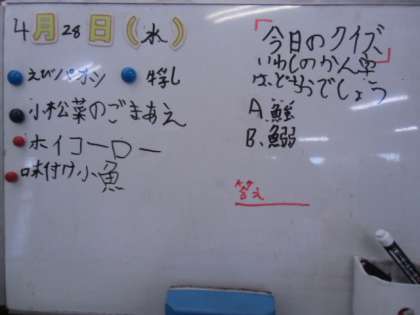 4月28日(水)
えびパオシ 牛乳
小松菜のごまあえ
ホイコーロー
味付け小魚
「今日のクイズ」
いわしのかん字
は、どちらでしょう
A.鮭
B.鰯
答え